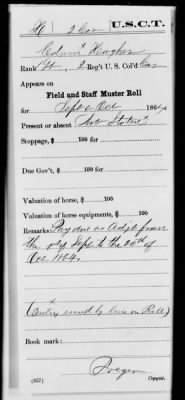 H 2 Cav U.S.C.T.
Edwin Hughes
Rank Lt. 2 Reg't U. S. Col'd Cav
Appears on
Field and Staff Muster Roll
for Sept & Oct, 1864
Present or absent Not Stated
Stoppage, $ 100 for
Due Gov't, $ 100 for
Valuation of horse, $ 100
Valuation of horse equipments, $ 100
Remarks: Pay due as Adjt from
the Sept to the 20th of
Oct 1864.
Book mark:
(857) Copyist.